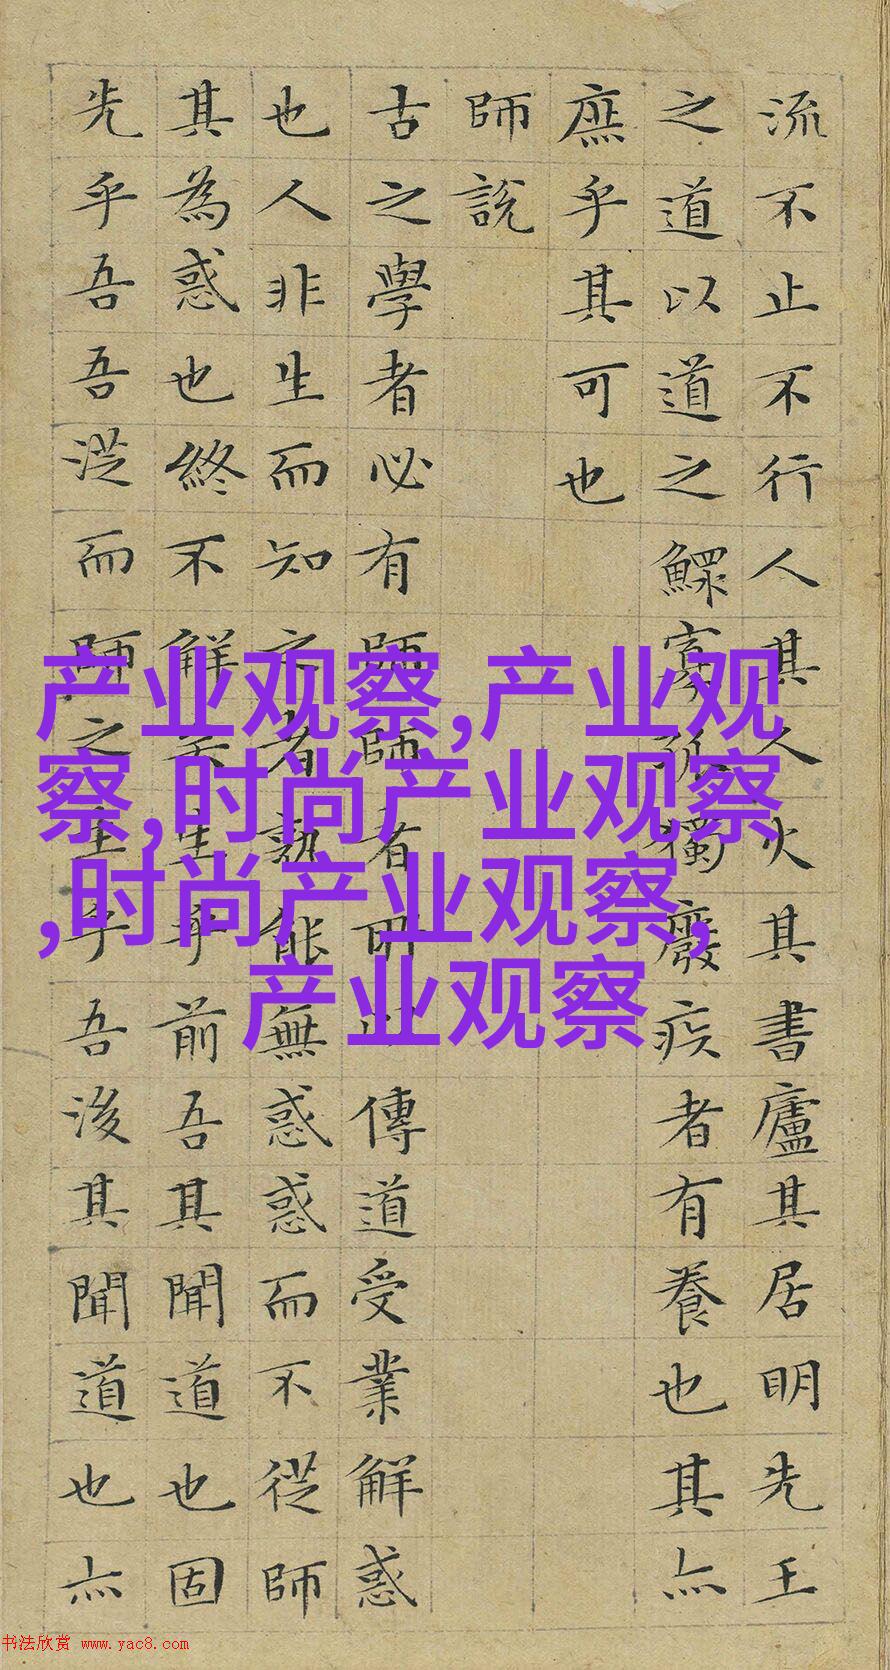 流不止不行人其人火其書廬其居明先王
之道以道之鰥寡孤獨廢疾者有養也其亦
庶乎其可也
師說
古之學者必有師師者所以傳道受業解惑
也人非生而知之者孰能無惑惑而不從師
其為惑也終不解矣生乎前吾其聞道也固
先乎吾吾從而師之生乎吾後其聞道也亦
产业观察,产业观
察,时尚产业观察
,时尚产业观察,
产业观察
书法欣赏 www.yac8.com